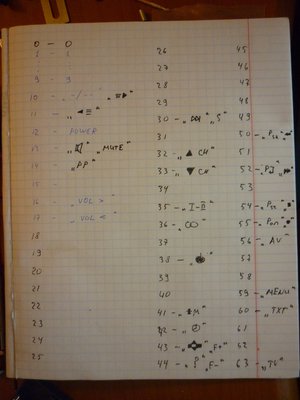 0 - 0
1 - 1
9 - 9
10 - „-/--"
11 -
12 - POWER
13 - „ MUTE"
14 - „PP"
15 -
16 - „VOL >"
17 - „VOL <"
18
19
20
21
22
23
24
25
26
27
28
29
30 - „ S"
31
32 - „▲ CH"
33 - „▼ CH"
34
35 - „I-II"
36 -
38 -
39
40
41 -
42 -
43 - „F+"
44 - „F-"
45
46
47
48
49
50 -
51
52 -
53
54 -
55 -
56 - „AV"
57
58
59 - „MENU"
60 - „TXT"
61
62
63 - „TV"